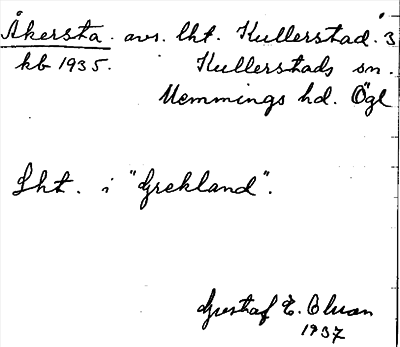 Åkersta. avs. lht. Kullerstad. 3
kb 1935. Kullerstads sn.
Memmings hd. Ögl
Lht. i "Grekland".
Gustaf E. Olson
1937